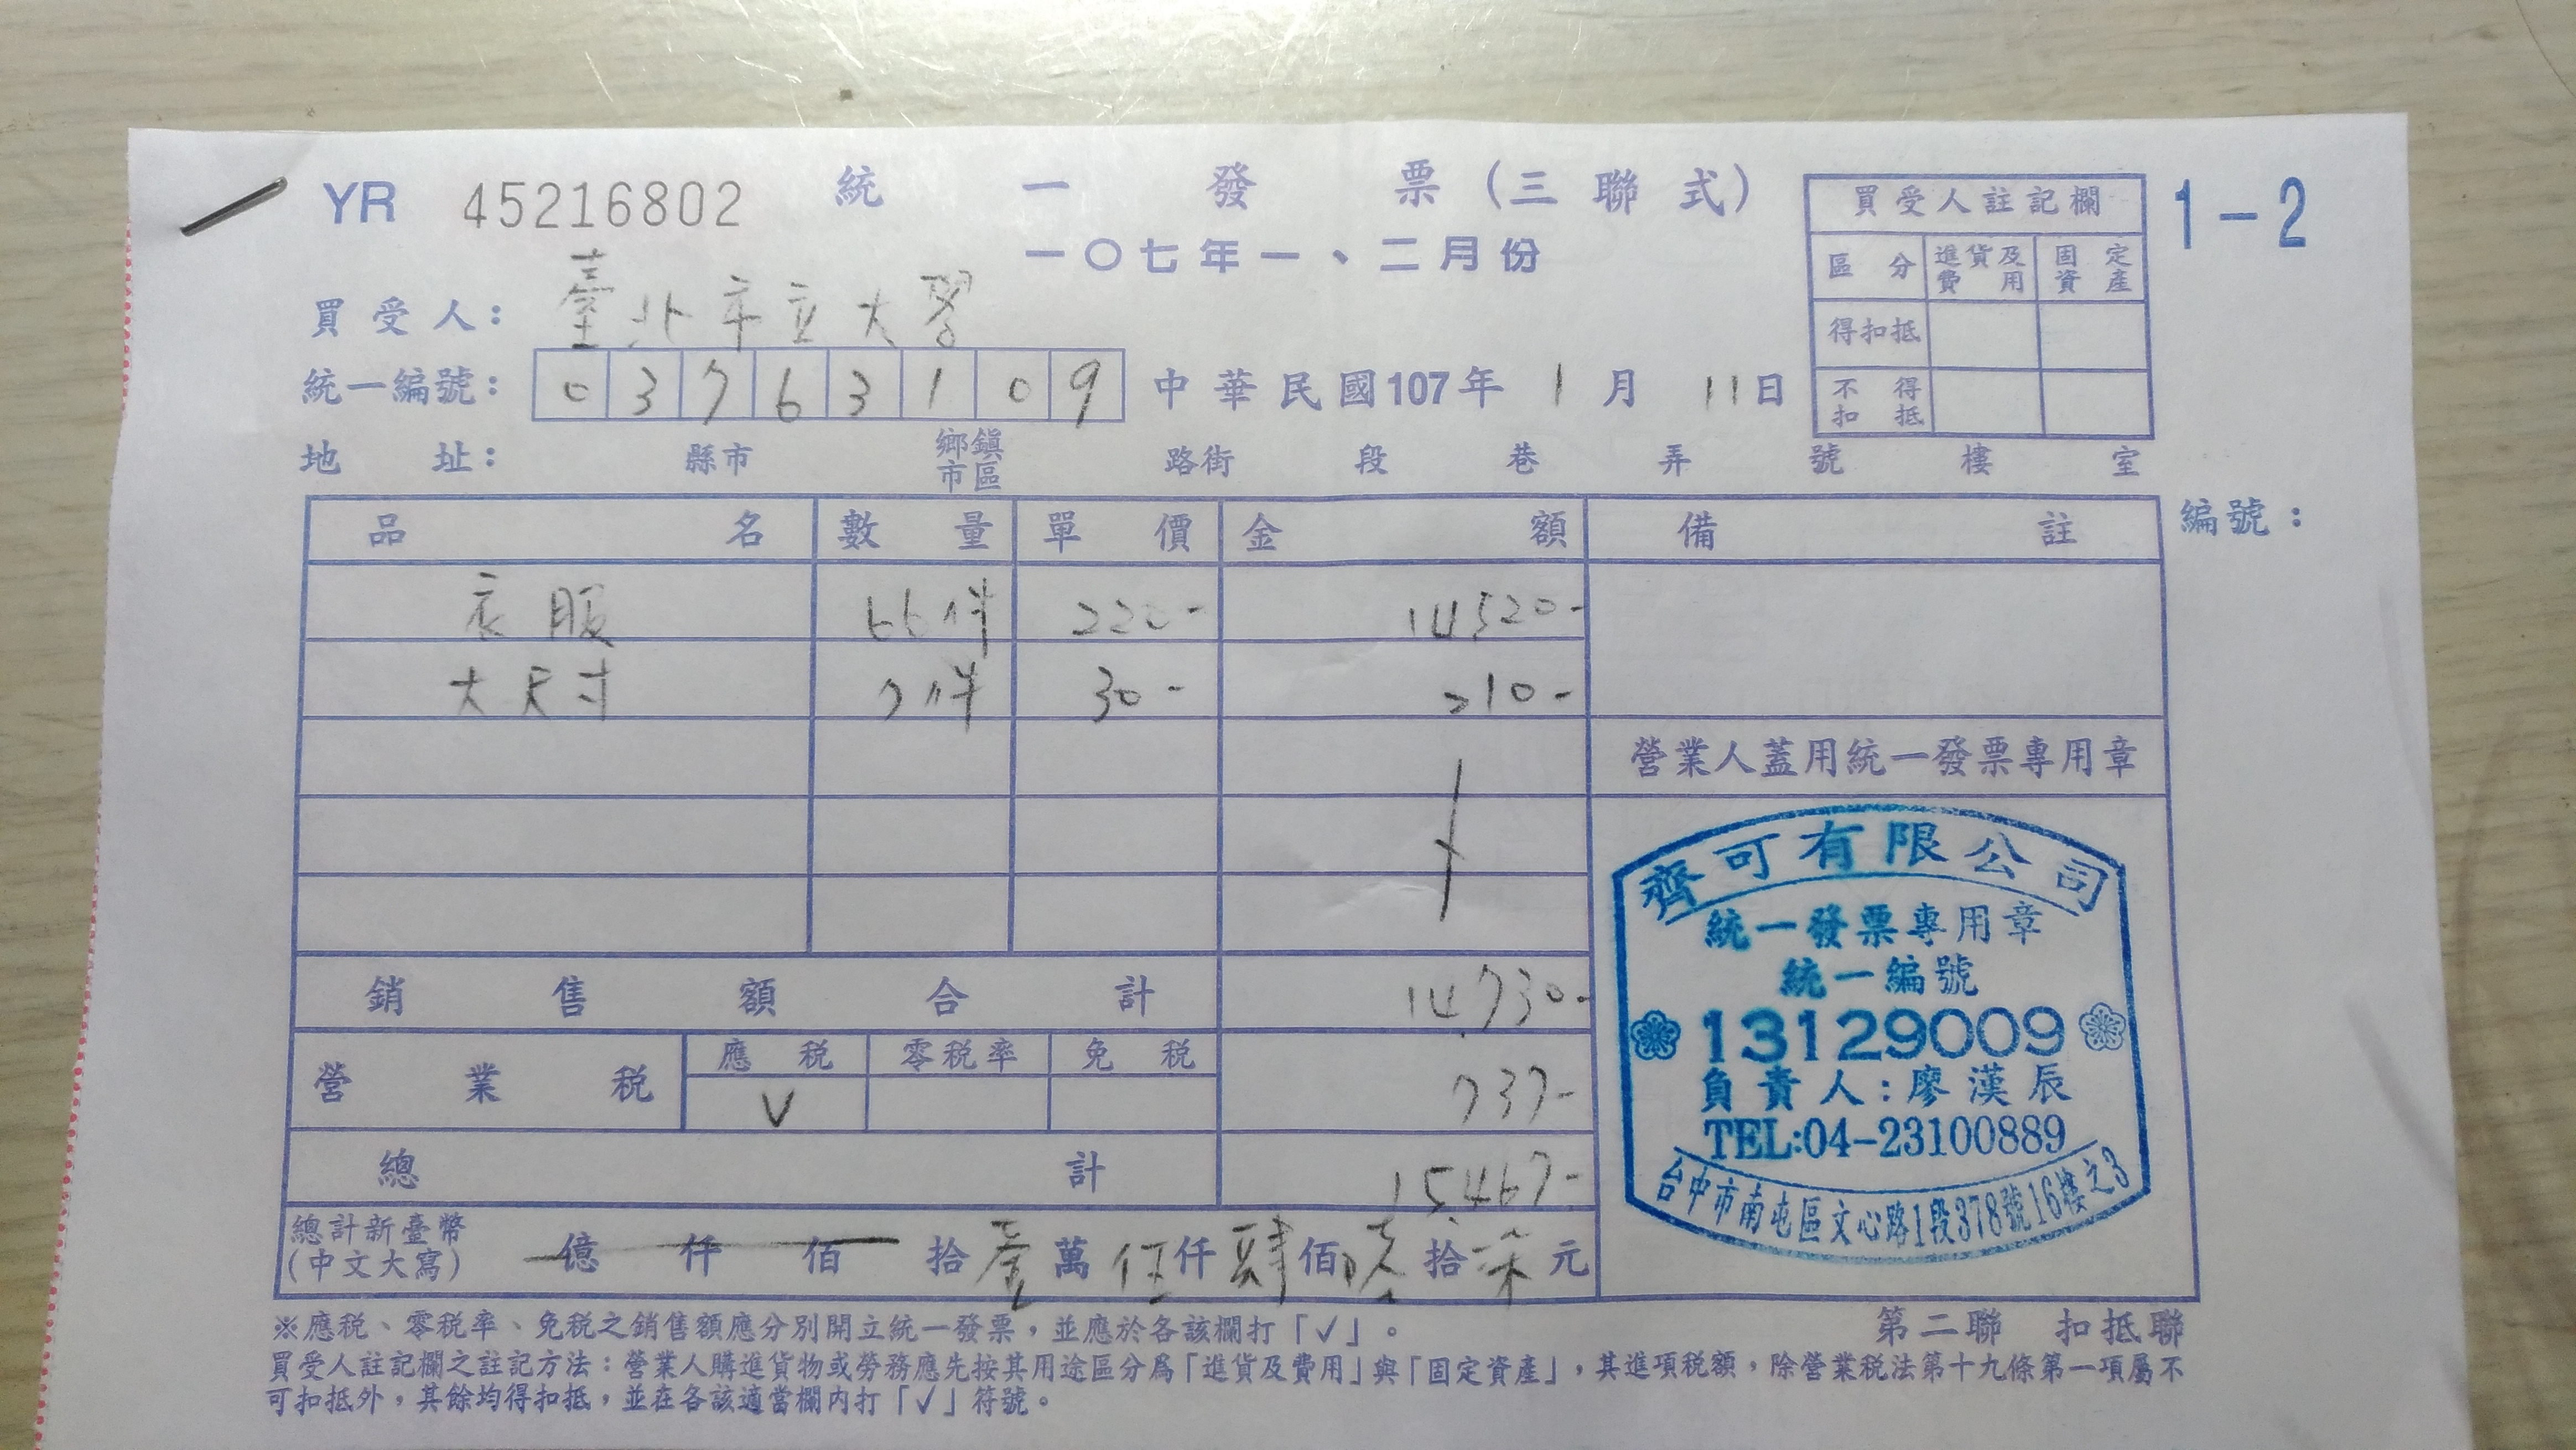 YR 45216802 統一發票(三聯式)
一〇七年一、二月份
1-2
買受人註記欄
區分 進貨及費用 固定資產
得扣抵
不得扣抵
買受人: 臺北市立大學
統一編號: 03763109 中華民國107年 1 月 11日
地址: 縣市 鄉鎮市區 路街 段 巷 弄 號 樓 室
品名 數量 單價 金額 備註
編號:
衣服 66件 220- 14520-
大尺寸 7件 30- 210-
營業人蓋用統一發票專用章
銷售額合計 14730-
營業稅 應稅 零稅率 免稅
V 737-
總計 15467-
總計新臺幣(中文大寫) 億仟佰拾壹萬伍仟肆佰陸拾柒元
齊可有限公司
統一發票專用章
統一編號
13129009
負責人:廖漢辰
TEL:04-23100889
台中市南屯區文心路1段378號16樓之3
第二聯 扣抵聯
※應稅、零稅率、免稅之銷售額應分別開立統一發票,並應於各該欄打「✓」。
買受人註記欄之註記方法:營業人購進貨物或勞務應先按其用途區分為「進貨及費用」與「固定資產」,其進項稅額,除營業稅法第十九條第一項屬不
可扣抵外,其餘均得扣抵,並在各該適當欄內打「✓」符號。